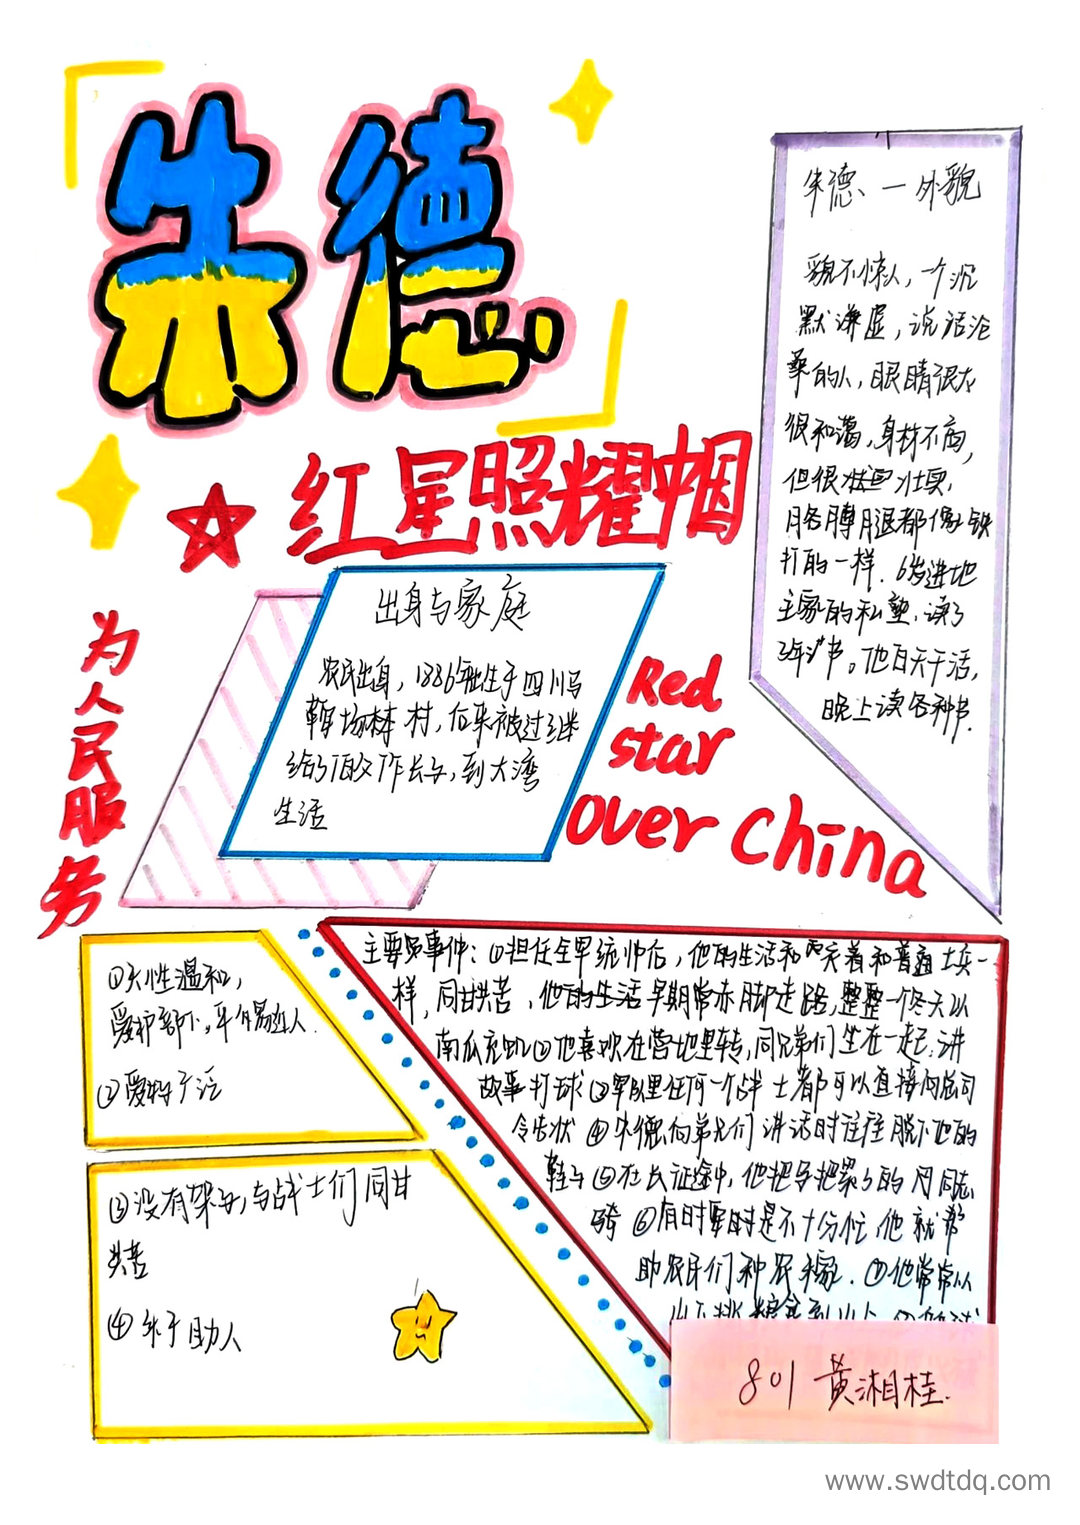 朱德
红星照耀中国
为人民服务
Red
star
over China
朱德 — 外貌
貌不惊人，一个沉
默谦虚，说话沧
桑的人，眼睛很大
很和蔼，身材不高，
但很结实，
胳膊腿都像铁
打的一样．6岁进地
主家的私塾，读了
3年书。他白天干活，
晚上读各种书．
出身与家庭
农民出身，1886年出生于四川马
鞍场 村，后来被过继
给 伯父作长子，到大湾
生活
①天性温和，
爱护部下。平易近人．
②爱好广泛
③没有架子，与战士们同甘
共苦
④乐于助人
主要事件：①担任全军统帅后，他的生活和穿着和普通士兵一
样，同甘共苦、他的生活早期常赤脚走路，整整一个冬天以
南瓜充饥②他喜欢在营地里转，同兄弟们坐在一起，讲
故事打球③军队里任何一个战士都可以直接向总司
令告状 ④朱德向弟兄们讲话时往往脱下他的
鞋子⑤在长征途中，他把马把累了的同志
骑⑥有时军时是不十分忙，他就帮
助农民们种农稼．⑦他常常从
山下挑粮食到山上
801 黄湘桂．
www.swdtdq.com